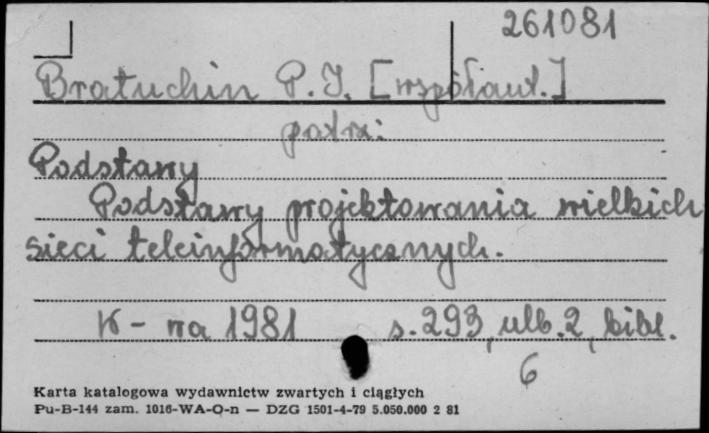 261081
Bratuchin P.I. [współaut.]
patrz:
Podstawy
Podstawy projektowania wielkich
sieci teleinformatycznych.
W-wa 1981 s. 293, ulb. 2, bibl.
6
Karta katalogowa wydawnictw zwartych i ciągłych
Pu-B-144 zam. 1016-WA-O-n — DZG 1501-4-79 5.050.000 2 81